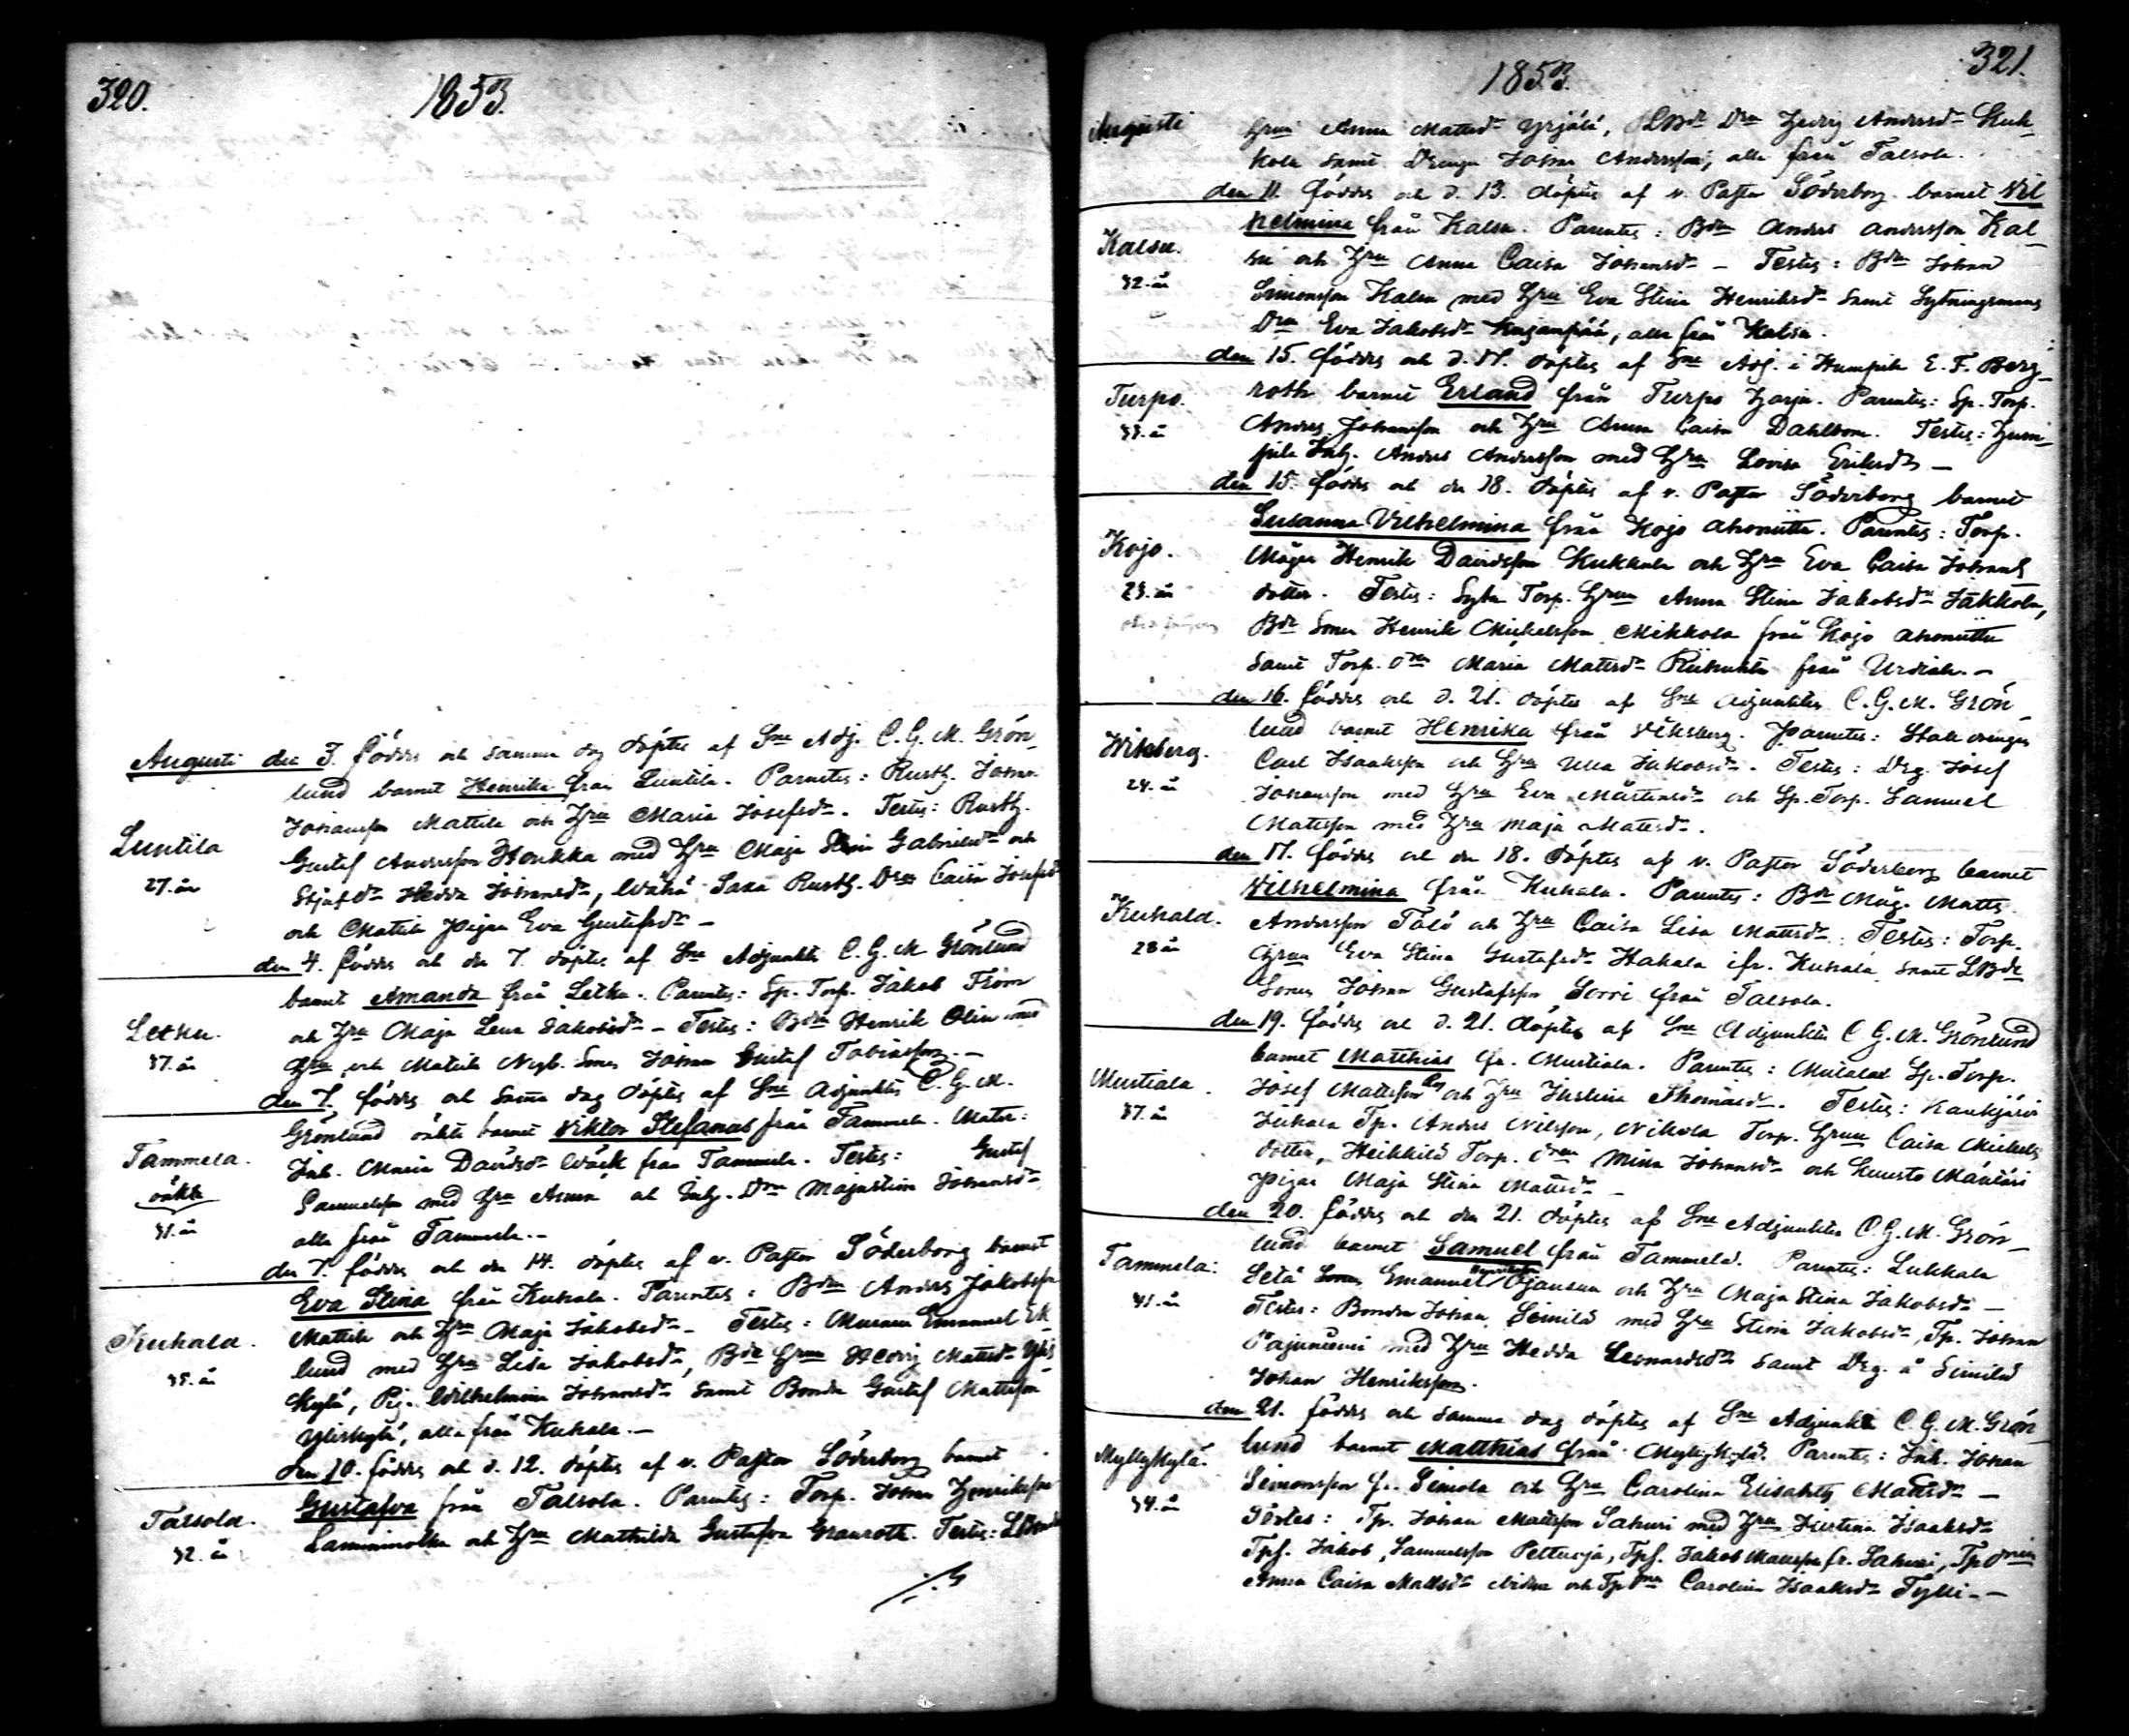 320. 1853.
Augusti den 3. föddes och samma dag döptes af Sne Adj. C. G. M. Grön-
lund barnet Henrika från Luntila. Parentes: Rusth. Johan
Johansson Mattila och Hru Maria Josefsdr. Testes: Rusth.
Luntila Gustaf Andersson Heukka med Hru Maja Gabrielsdr och
27. år Hedda Johansdr, Rusth. Dra Caisa Josefsdr
och Matila Pigan Eva Gustafsdr –
den 4. föddes och den 7. döptes af Sne Adjunkten C. G. M Grönlund
barnet Amanda från Letku. Parentes: Sp. Torp. Jakob From
Letku. och Hru Maja Lena Jakobsdr – Testes: Bdn Henrik Olin med
37. år Hru och Matila Nygb. Sonen Johan Gustaf Tobiasson. –
den 7. föddes och samma dag döptes af Sne Adjunkten C. G. M.
Grönlund oäkta barnet Viktor Stefanus från Tammela. Mater:
Tammela. Inh. Maria Davidsdr Wäck från Tammela. Testes: Gustaf
oäkta Samuelsson med Hru Anna och Inh. Dra Majastina Johansdr
41. år alla från Tammela. –
den 7. föddes och den 14. döptes af v. Pastor Söderborg barnet
Eva Stina från Kuhala. Parentes: Bdn Anders Jakobsson
Kuhala. Mattila och Hru Maja Jakobsdr – Testes: Emanuel Ek-
35. år lund med Hru Lisa Jakobsdr, Bde Hrun Hedvig Mattsdr Ylis-
kylä, Pig. Wilhelmina Johansdr samt Bonden Gustaf Mattsson
Yliskylä, alla från Kuhala. –
den 10. föddes och d. 12. döptes af v. Pastor Söderborg barnet
Talsola. Gustafva från Talsola. Parentes: Torp. Johan Henriksson
32. år Lamminnolka och Hru Mathilda Gustafva Granroth. Testes:
1853. 321.
Augusti Hrun Anna Mattsdr Yrjälä, Dra Hedvig Andersdr Kuk-
kola samt Drengen Johan Andersson, alla från Talsola.
den 11. föddes och d. 13. döptes af v. Pastor Söderborg barnet Vil
helmina från Kalsu. Parentes: Bdn Anders Andersson Kal-
Kalsu. su och Hru Anna Caisa Johansdr – Testes: Bdn Johan
32. år Simonsson Kalsu med Hru Eva Stina Henriksdr samt Sytningsmans
Dra Eva Jakobsdr Kujanpää, alla från Kalsu.
den 15. föddes och d. 17. döptes af Sne Adj. i Humpila E. F. Berg-
Turpo. roth barnet Erland från Turpo Harju. Parentes: Sp. Torp.
33. år Anders Johansson och Hru Anna Caisa Dahlbom. Testes: Hum-
pila Inh. Anders Andersson med Hru Lovisa Eriksdr –
den 15. föddes och den 18. döptes af v. Pastor Söderborg barnet
Susanna Vilhelmina från Kojo Ahoniitty. Parentes: Torp.
Kojo. Mågen Henrik Davidsson Kukkula och Hru Eva Caisa Johans
23. år dotter. Testes: Torp. Hrun Anna Stina Jakobsdr Jäkkola,
Bde Sonen Henrik Michelsson Mikkola från Kojo Ahoniitty
samt Torp. Dra Maria Mattsdr från Urdiala. –
den 16. föddes och d. 21. döptes af Sne Adjunkten C. G. M. Grön
Wiksberg. lund barnet Henrika från Viksberg. Parentes: Stall drengen
24. år Carl Isaksson och Hru Ulla Jakobsdr. Testes: Drg. Josef
Johansson med Hru Eva Mårtensdr och Sp. Torp. Samuel
Mattsson med Hru Maja Mattsdr.
den 17. föddes och den 18. döptes af v. Pastor Söderborg barnet
Vilhelmina från Kuhala. Parentes: Bde Måg. Matts
Kuhala. Andersson Tälö och Hru Caisa Lisa Mattsdr. Testes: Torp.
28 år Hrun Eva Stina Gustafsdr Hakala ifr. Kuhala samt LBde
Sonen Johan Gustafsson Sorri från Talsola.
den 19. föddes och d. 21. döptes af Sne Adjunkten C G. M. Grönlund
barnet Matthias fr. Mustiala. Parentes: Sp. Torp.
Mustiala. Josef Mattsson och Hru Justina Thomasdr. Testes: Kaukjärvi
37. år Jukola Tp. Anders Nilsson, Nikola Torp. Hrun Caisa Michels
dotter, Heikkilä Torp. Dra Mina Johansdr och
Pigan Maja Stina Mattsdr –
den 20. föddes och den 21. döptes af Sne Adjunkten C. G. M. Grön-
Tammela. lund barnet Samuel från Tammela. Parentes: Lukkala
41. år Setä Emanuel Henriksson Ojansuu och Hru Maja Stina Jakobsdr –
Testes: Bonden Johan Simila med Hru Stina Jakobsdr, Tp. Johan
Pajuniemi med Hru Hedda Leonardsdr samt Drg. å Simila
Johan Henriksson.
den 21. föddes och samma dag döptes af Sne Adjunkten C. G. M. Grön
Myllykylä. lund barnet Matthias från Myllykylä. Parentes: Inh. Johan
34. år Simonsson fr. Simola och Hru Carolina Elisabeth Mattsdr –
Testes: Tp. Johan Mattsson Sahuri med Hru Justina Isaksdr
Tpf. Jakob Samuelsson Pelturja, Tpf. Jakob Mattsson fr. Sahuri, Tp
Anna Caisa Mattsdr och Tp Dra Carolina Isaksdr Tylli. –